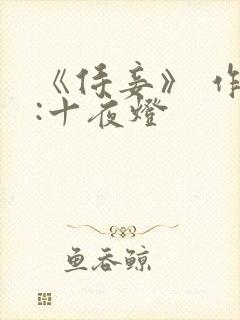 《侍妾》 作
:十夜燈
鱼吞鲸